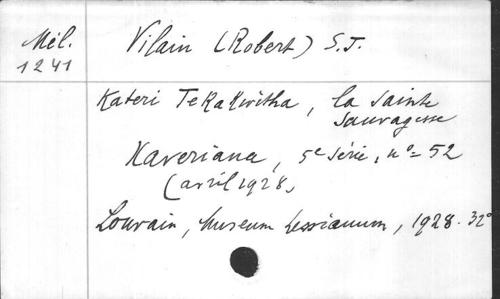 Mél.
1241
Vilain (Robert) S.J.
Kateri Tekakwitha, la sainte
sauvagesse
Xaveriana, 5e série, n° 52
(avril 1928)
Louvain, Museum Lessianum, 1928. 32°